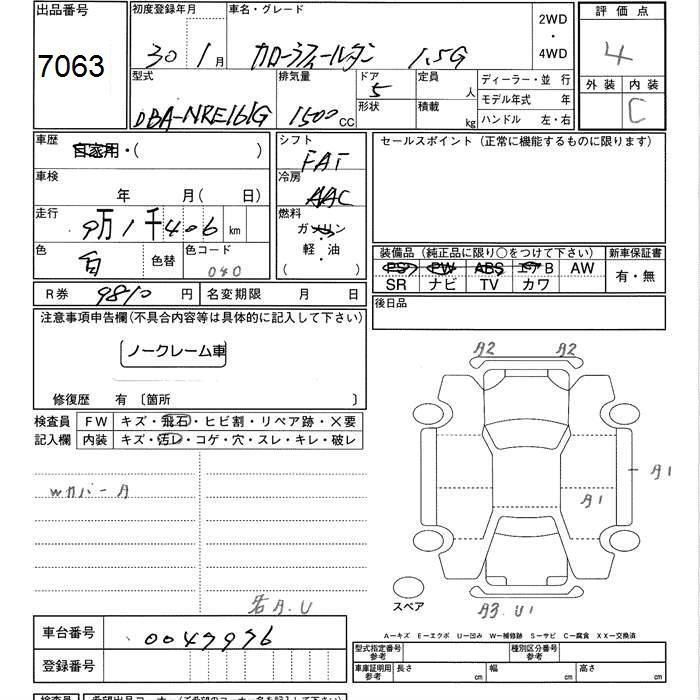 出品番号
7063
初度登録年月
30 1月
車名・グレード
カローラフィールダー 1.5G
2WD
・
4WD
評価点
4
外装 内装
C
型式
DBA-NRE161G
排気量
1500 CC
ドア
5
形状
定員
人
積載
kg
ディーラー・並行
モデル年式 年
ハンドル 左・右
車歴
自家用・( )
車検
年 月( 日)
走行
9万1千406km
色
白
色替
色コード
040
シフト
FAT
冷房
AAC
燃料
ガソリン
軽・油
( )
セールスポイント(正常に機能するものに限ります)
装備品(純正品に限り○をつけて下さい)
PS PW ABS エアB AW
SR ナビ TV カワ
新車保証書
有・無
R券 9810円
名変期限 月 日
後日品
注意事項申告欄(不具合内容等は具体的に記入して下さい)
ノークレーム車
修復歴 有〔箇所 〕
検査員
記入欄
FW キズ・飛石・ヒビ割・リペア跡・×要
内装 キズ・汚レ・コゲ・穴・スレ・キレ・破レ
Wカバー A
A2 A2
A1
A1
スペア
A3.U1
A.U
A-キズ E-エクボ U-凹み W-補修跡 S-サビ C-腐食 XX-交換済
車台番号
登録番号
型式指定番号
参考
種別区分番号
参考
車庫証明用
参考
長さ cm 幅 cm 高さ cm
検査員